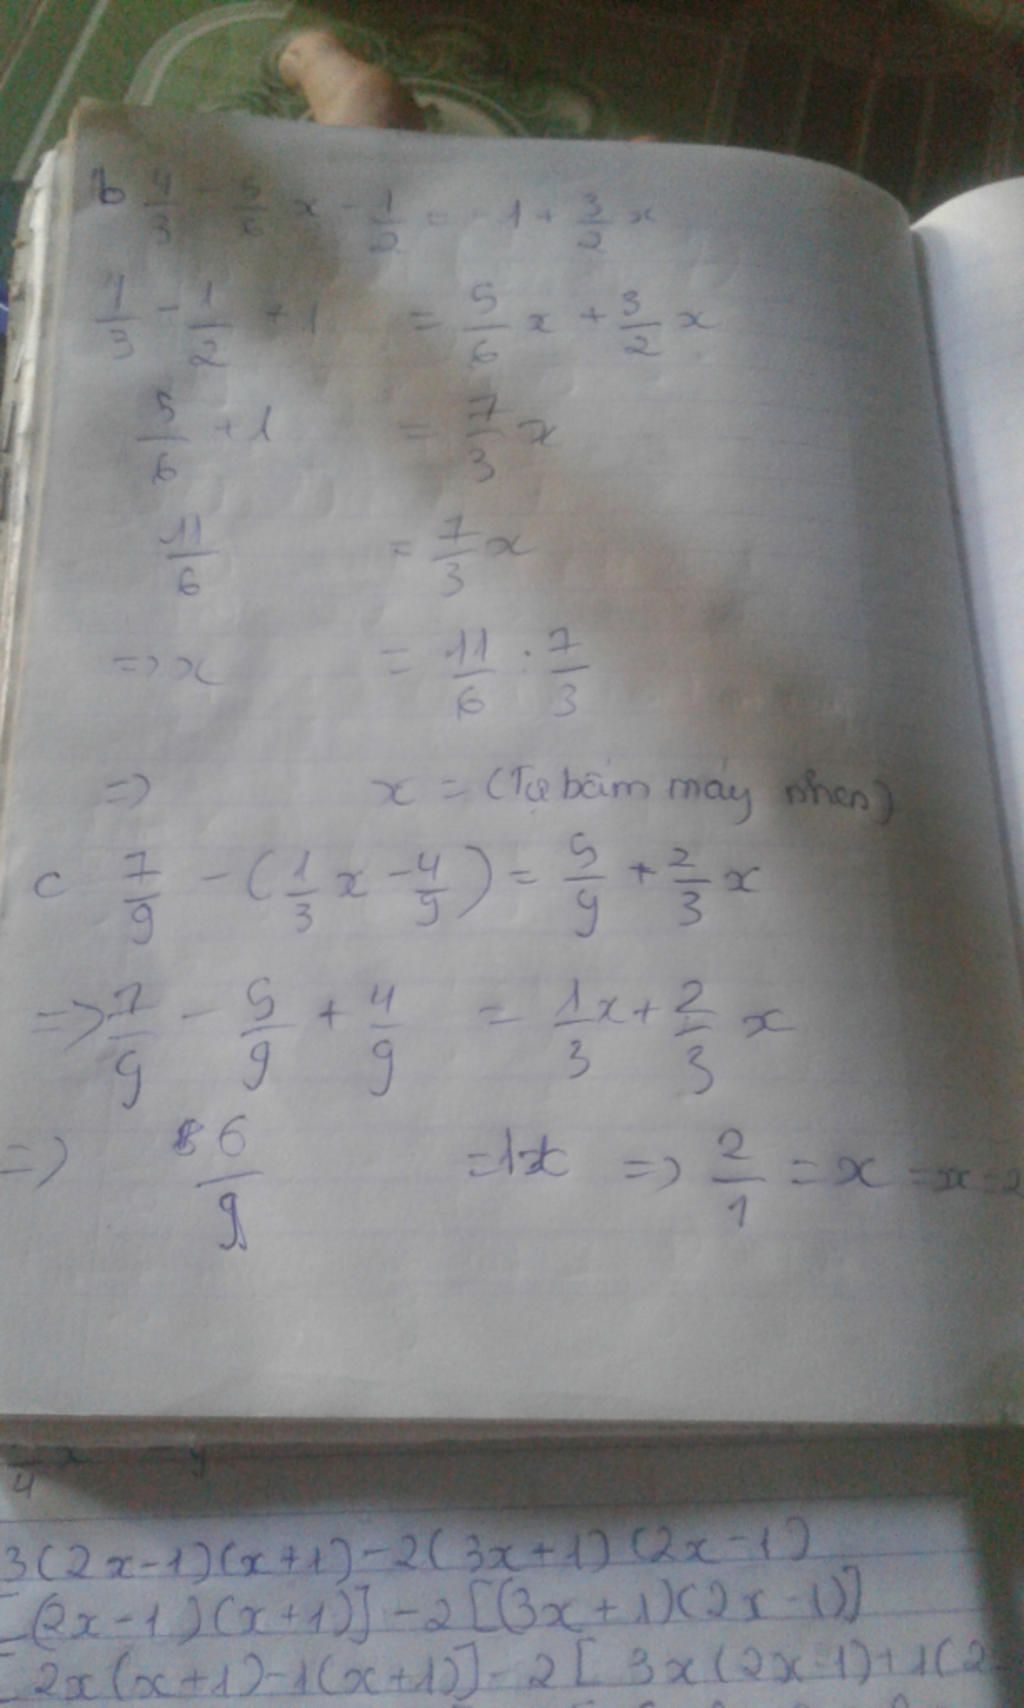 b 4/3 - 5/6 x - 1/2 = -1 + 3/2 x
4/3 - 1/2 + 1 = 5/6 x + 3/2 x
5/6 + 1 = 7/3 x
11/6 = 7/3 x
=> x = 11/6 : 7/3
=> x = (Tự bấm máy nhen)
c 7/9 - (1/3 x - 4/9) = 5/9 + 2/3 x
=> 7/9 - 5/9 + 4/9 = 1/3 x + 2/3 x
=> 6/9 = 1x => 2/1 = x = x = 2
3(2x-1)(x+1)-2(3x+1)(2x-1)
(2x-1)(x+1)]-2[(3x+1)(2x-1)]
2x(x+1)-1(x+1)]-2[3x(2x-1)+1(2